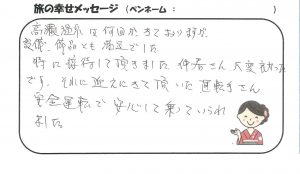 旅の幸せメッセージ（ペンネーム：　　　　）
高濃温泉は何回かきておりますが
食事、作品とも満足でした
特に接待して頂きました仲居さん大変良かった
です。それに迎えにきて頂いた運転手さん
安全運転で安心して乗っていられ
ました